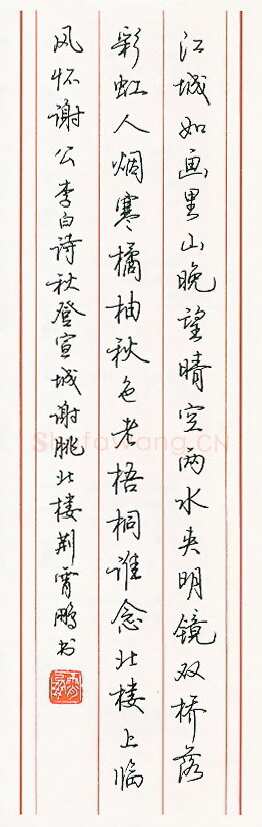 江城如画里山晚望晴空两水夹明镜双桥落
彩虹人烟寒橘柚秋色老梧桐谁念北楼上临
风怀谢公李白诗秋登宣城谢朓北楼荆霄鹏书